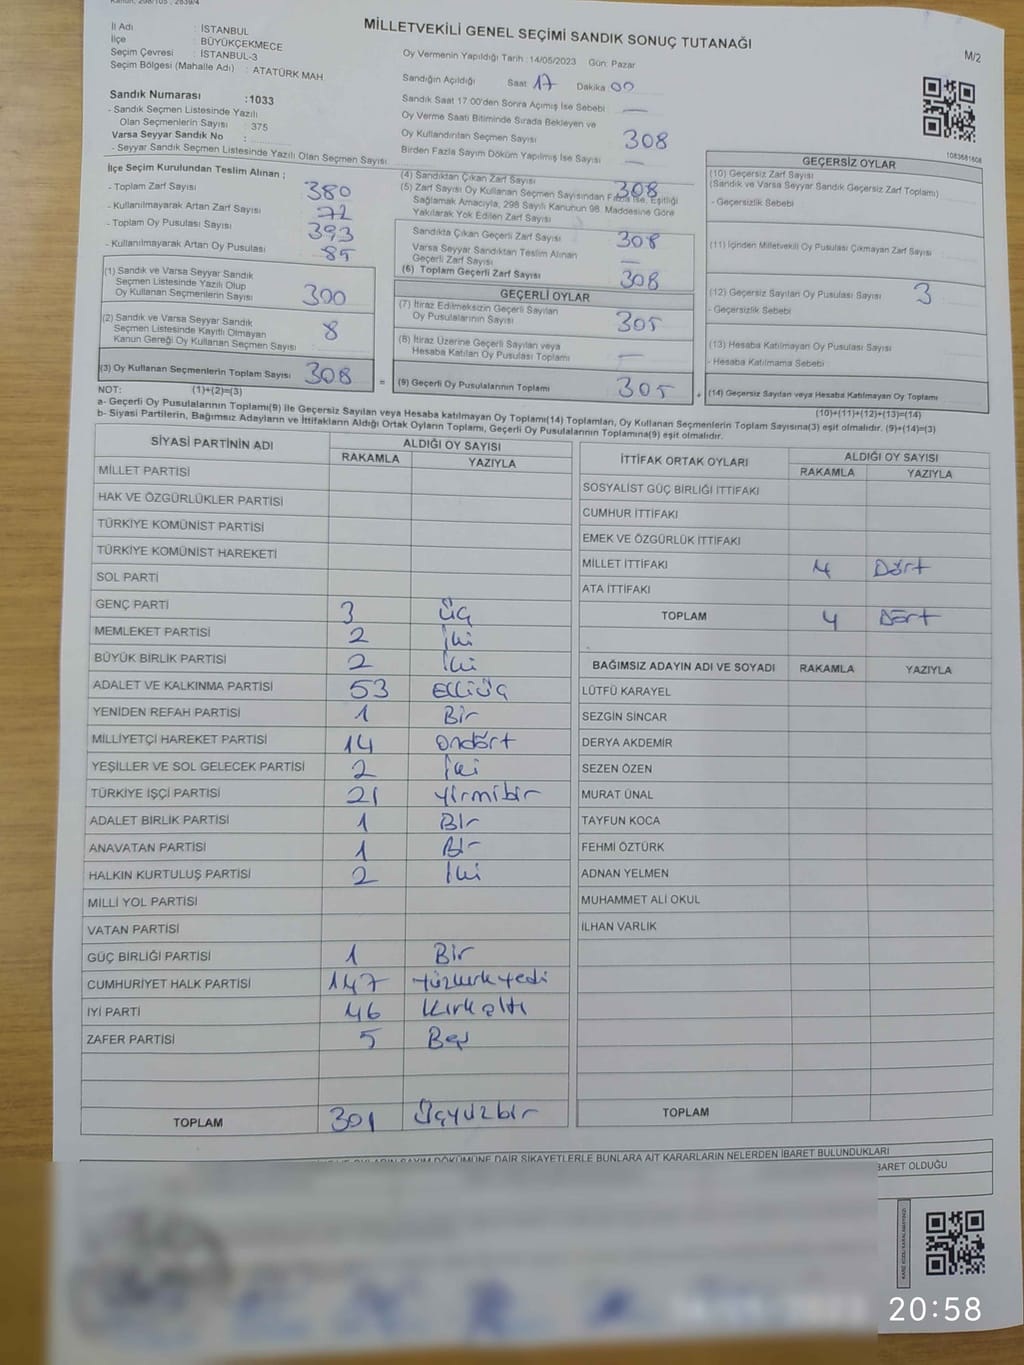 MİLLETVEKİLİ GENEL SEÇİMİ SANDIK SONUÇ TUTANAĞI
M/2
İl Adı : İSTANBUL
İlçe : BÜYÜKÇEKMECE
Seçim Çevresi : İSTANBUL-3
Seçim Bölgesi (Mahalle Adı) : ATATÜRK MAH
Sandık Numarası :1033
- Sandık Seçmen Listesinde Yazılı
Olan Seçmenlerin Sayısı : 375
Varsa Seyyar Sandık No :
- Seyyar Sandık Listesinde Yazılı Olan Seçmen Sayısı:
Oy Vermenin Yapıldığı Tarih :14/05/2023 Gün: Pazar
Sandığın Açıldığı Saat 17 Dakika 00
Sandık Saat 17:00'den Sonra Açımış İse Sebebi —
Oy Verme Saati Bitiminde Sırada Bekleyen ve
Oy Kullandırılan Seçmen Sayısı 308
Birden Fazla Sayım Döküm Yapılmış İse Sayısı —
1083681808
İlçe Seçim Kurulundan Teslim Alınan ;
- Toplam Zarf Sayısı 380
- Kullanılmayarak Artan Zarf Sayısı 72
- Toplam Oy Pusulası Sayısı 393
- Kullanılmayarak Artan Oy Pusulası 85
(1) Sandık ve Varsa Seyyar Sandık
Seçmen Listesinde Yazılı Olup
Oy Kullanan Seçmenlerin Sayısı 300
(2) Sandık ve Varsa Seyyar Sandık
Seçmen Listesinde Kayıtlı Olmayan
Kanun Gereği Oy Kullanan Seçmen Sayısı : 8
(3) Oy Kullanan Seçmenlerin Toplam Sayısı 308
NOT: (1)+(2)=(3)
(4) Sandıktan Çıkan Zarf Sayısı 308
(5) Zarf Sayısı Oy Kullanan Seçmen Sayısından Fazla İse, Eşitliği
Sağlamak Amacıyla, 298 Sayılı Kanunun 98. Maddesine Göre
Yakılarak Yok Edilen Zarf Sayısı
Sandıkta Çıkan Geçerli Zarf Sayısı 308
Varsa Seyyar Sandıktan Teslim Alınan
Geçerli Zarf Sayısı —
(6) Toplam Geçerli Zarf Sayısı 308
GEÇERLİ OYLAR
(7) İtiraz Edilmeksizin Geçerli Sayılan
Oy Pusulalarının Sayısı 305
(8) İtiraz Üzerine Geçerli Sayılan veya
Hesaba Katılan Oy Pusulası Toplamı —
= (9) Geçerli Oy Pusulalarının Toplamı 305
GEÇERSİZ OYLAR
(10) Geçersiz Zarf Sayısı
(Sandık ve Varsa Seyyar Sandık Geçersiz Zarf Toplamı)
- Geçersizlik Sebebi
(11) İçinden Milletvekili Oy Pusulası Çıkmayan Zarf Sayısı
(12) Geçersiz Sayılan Oy Pusulası Sayısı 3
- Geçersizlik Sebebi
(13) Hesaba Katılmayan Oy Pusulası Sayısı
- Hesaba Katılmama Sebebi
+ (14) Geçersiz Sayılan veya Hesaba Katılmayan Oy Toplamı
(10)+(11)+(12)+(13)=(14)
a- Geçerli Oy Pusulalarının Toplamı(9) ile Geçersiz Sayılan veya Hesaba katılmayan Oy Toplamı(14) Toplamları, Oy Kullanan Seçmenlerin Toplam Sayısına(3) eşit olmalıdır. (9)+(14)=(3)
b- Siyasi Partilerin, Bağımsız Adayların ve İttifakların Aldığı Ortak Oyların Toplamı, Geçerli Oy Pusulalarının Toplamına(9) eşit olmalıdır.
SİYASİ PARTİNİN ADI ALDIĞI OY SAYISI
RAKAMLA YAZIYLA
MİLLET PARTİSİ
HAK VE ÖZGÜRLÜKLER PARTİSİ
TÜRKİYE KOMÜNİST PARTİSİ
TÜRKİYE KOMÜNİST HAREKETİ
SOL PARTİ
GENÇ PARTİ 3 Üç
MEMLEKET PARTİSİ 2 İki
BÜYÜK BİRLİK PARTİSİ 2 İki
ADALET VE KALKINMA PARTİSİ 53 Elliüç
YENİDEN REFAH PARTİSİ 1 Bir
MİLLİYETÇİ HAREKET PARTİSİ 14 ondört
YEŞİLLER VE SOL GELECEK PARTİSİ 2 İki
TÜRKİYE İŞÇİ PARTİSİ 21 yirmibir
ADALET BİRLİK PARTİSİ 1 Bir
ANAVATAN PARTİSİ 1 Bir
HALKIN KURTULUŞ PARTİSİ 2 İki
MİLLİ YOL PARTİSİ
VATAN PARTİSİ
GÜÇ BİRLİĞİ PARTİSİ 1 Bir
CUMHURİYET HALK PARTİSİ 147 yüzkırkyedi
İYİ PARTİ 46 Kırkaltı
ZAFER PARTİSİ 5 Beş
TOPLAM 301 Üçyüzbir
İTTİFAK ORTAK OYLARI ALDIĞI OY SAYISI
RAKAMLA YAZIYLA
SOSYALİST GÜÇ BİRLİĞİ İTTİFAKI
CUMHUR İTTİFAKI
EMEK VE ÖZGÜRLÜK İTTİFAKI
MİLLET İTTİFAKI 4 Dört
ATA İTTİFAKI
TOPLAM 4 Dört
BAĞIMSIZ ADAYIN ADI VE SOYADI RAKAMLA YAZIYLA
LÜTFÜ KARAYEL
SEZGİN SİNCAR
DERYA AKDEMİR
SEZEN ÖZEN
MURAT ÜNAL
TAYFUN KOCA
FEHMİ ÖZTÜRK
ADNAN YELMEN
MUHAMMET ALİ OKUL
İLHAN VARLIK
TOPLAM
SAYIM DÖKÜMÜNE DAİR ŞİKAYETLERLE BUNLARA AİT KARARLARIN NELERDEN İBARET BULUNDUKLARI
BARET OLDUĞU
20:58